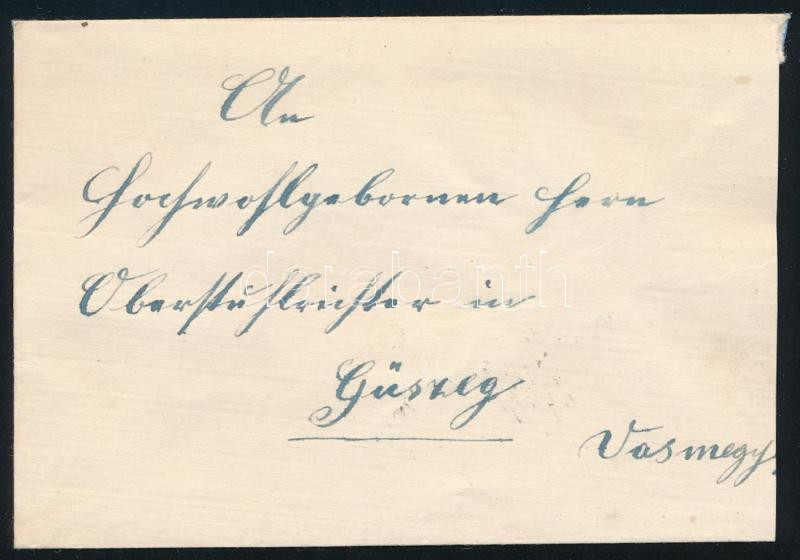 An
Hochwohlgebornen Herrn
Oberstuhlrichter in
Güszeg
Vasmegy
darabanth